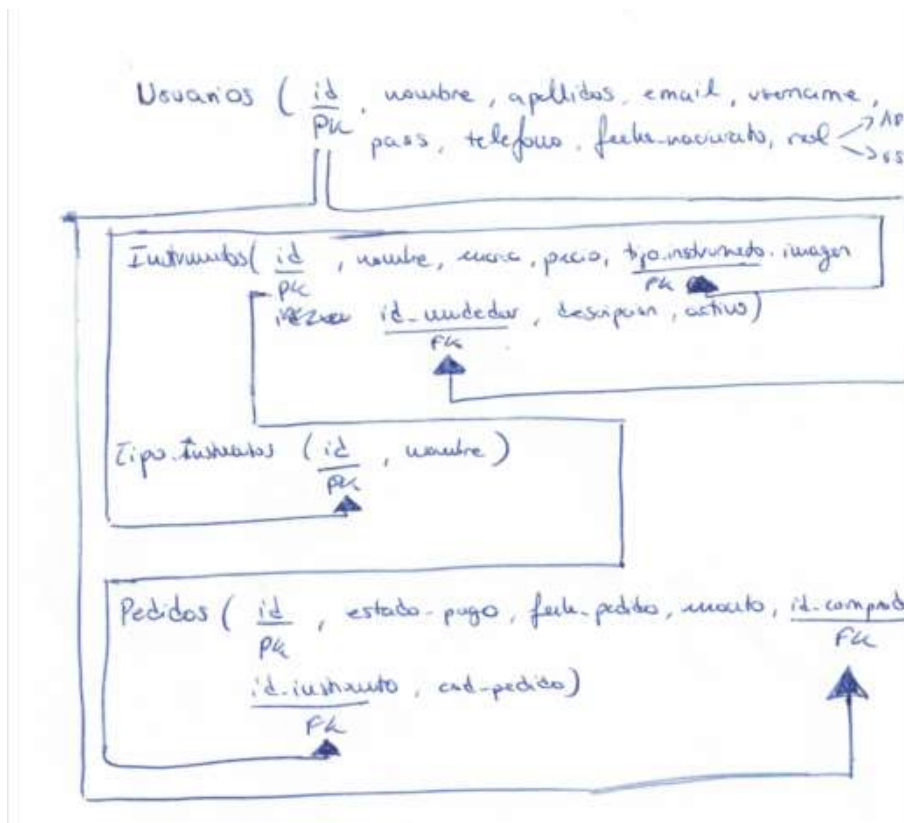 Usuarios ( id , nombre, apellidos, email, username,
PK pass, telefono, rol
Instrumentos( id , nombre, marca, precio, tipo.instrumento. imagen
PK FK
id_vendedor, descripcion, activo)
FK
Tipo.Instrumentos ( id , nombre )
PK
Pedidos ( id , estado-pago, fecha-pedido,
PK FK
id_instrumento, cod-pedido)
FK